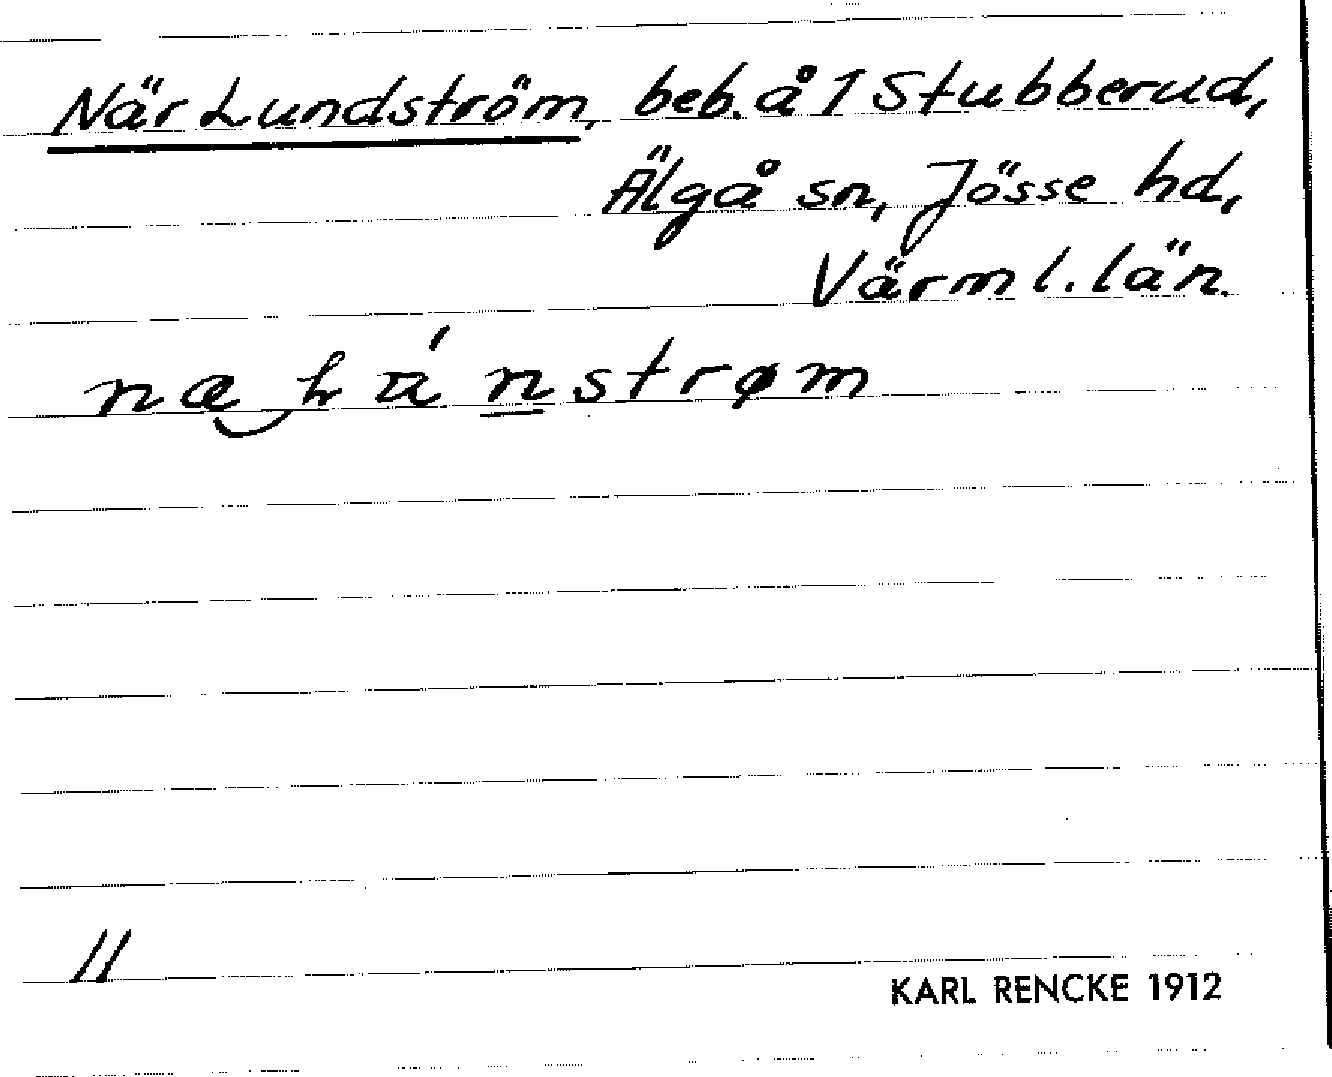 När Lundström, beb. å 1 Stubberud,
Älgå sn, Jösse hd,
Värml. län.
11
KARL RENCKE 1912